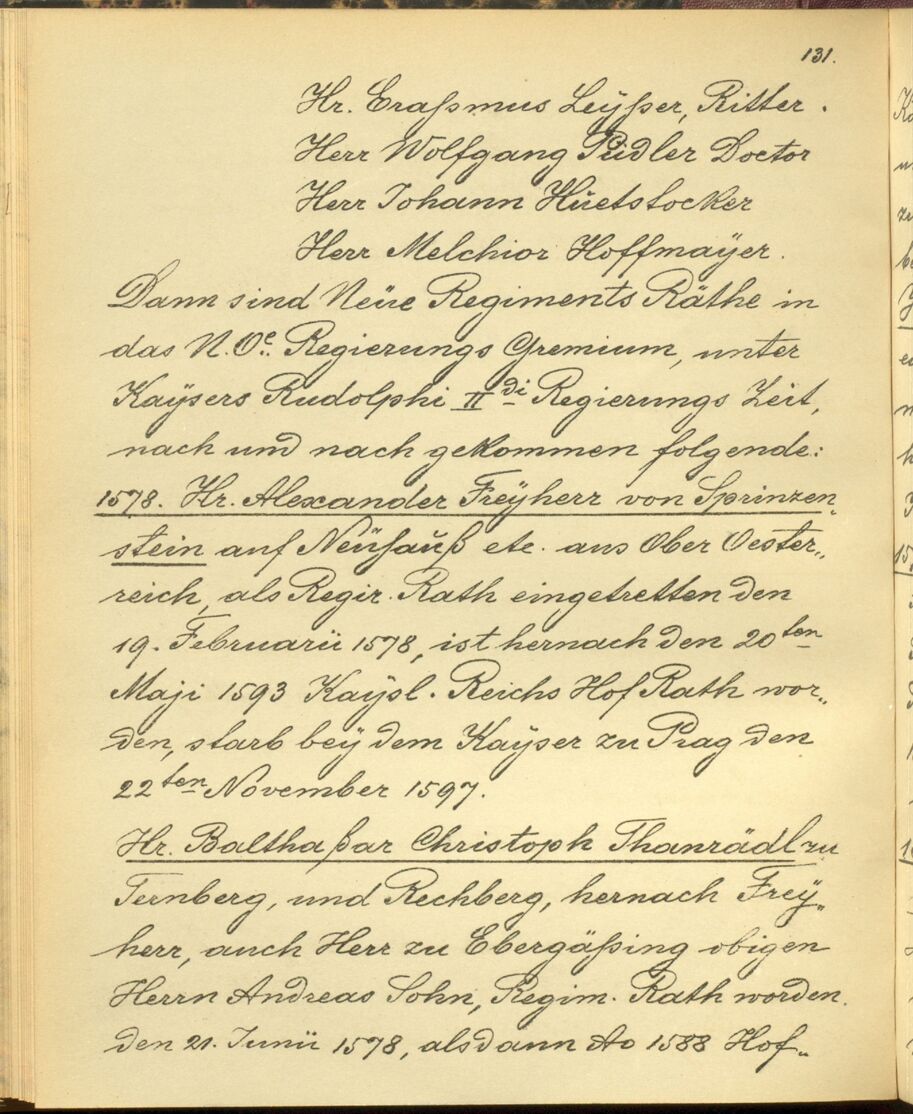 131.
Hr. Eraßmus Leÿßer, Ritter.
Herr Wolfgang Püdler Doctor
Herr Johann Hüetstocker
Herr Melchior Hoffmaÿer.
Dann sind Neüe Regiments Räthe in
das N. Oe. Regierungs Gremium, unter
Kaÿsers Rudolphi II di Regierungs Zeit,
nach und nach gekommen folgende:
1578. Hr. Alexander Freÿherr von Sprinzen„
stein auf Neühauß etc. aus Ober Oester„
reich, als Regir. Rath eingetretten den
19. Februarii 1578, ist hernach den 20ten
Maji 1593 Kaÿsl. Reichs Hof Rath wor„
den, starb beÿ dem Kaÿser zu Prag den
22ten November 1597.
Hr. Balthaßar Christoph Thanrädl zu
Ternberg, und Rechberg, hernach Freÿ„
herr, auch Herr zu Ebergäßing obigen
Herrn Andreas Sohn, Regim. Rath worden.
den 21. Junii 1578, alsdann Ao 1588 Hof„